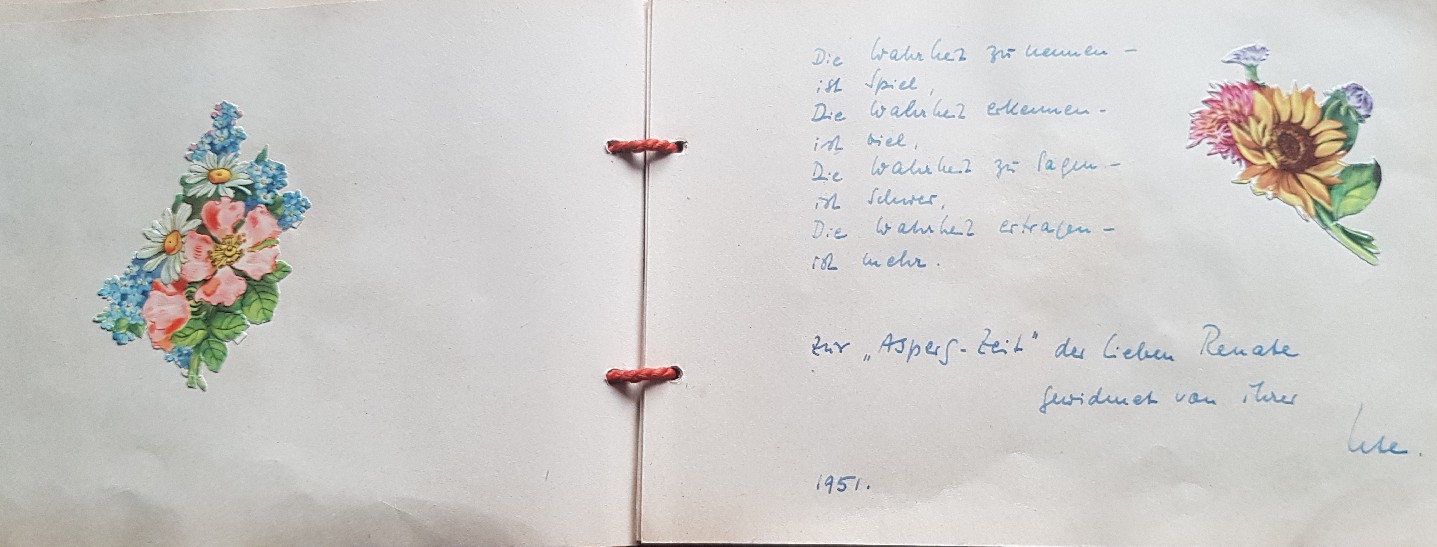 Die Wahrheit zu nennen –
ist Spiel,
Die Wahrheit erkennen –
ist viel,
Die Wahrheit zu sagen –
ist schwer,
Die Wahrheit ertragen –
ist mehr.
Zur „Asperg-Zeit" der lieben Renate
gewidmet von ihrer
1951.